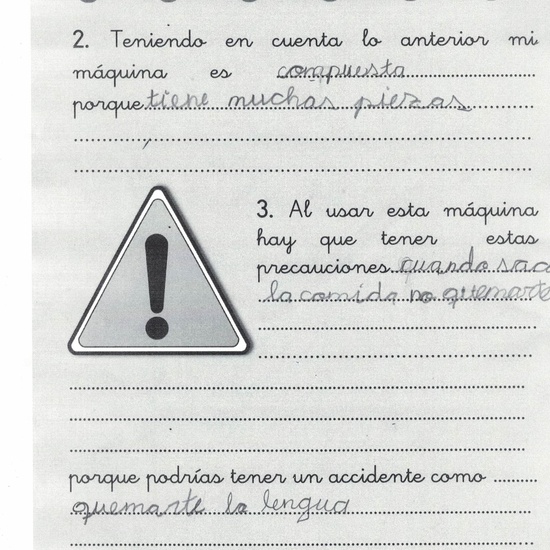 2. Teniendo en cuenta lo anterior mi
máquina es compuesta
porque tiene muchas piezas
3. Al usar esta máquina
hay que tener estas
precauciones cuando
la comida no quemarte
porque podrías tener un accidente como
quemarte la lengua